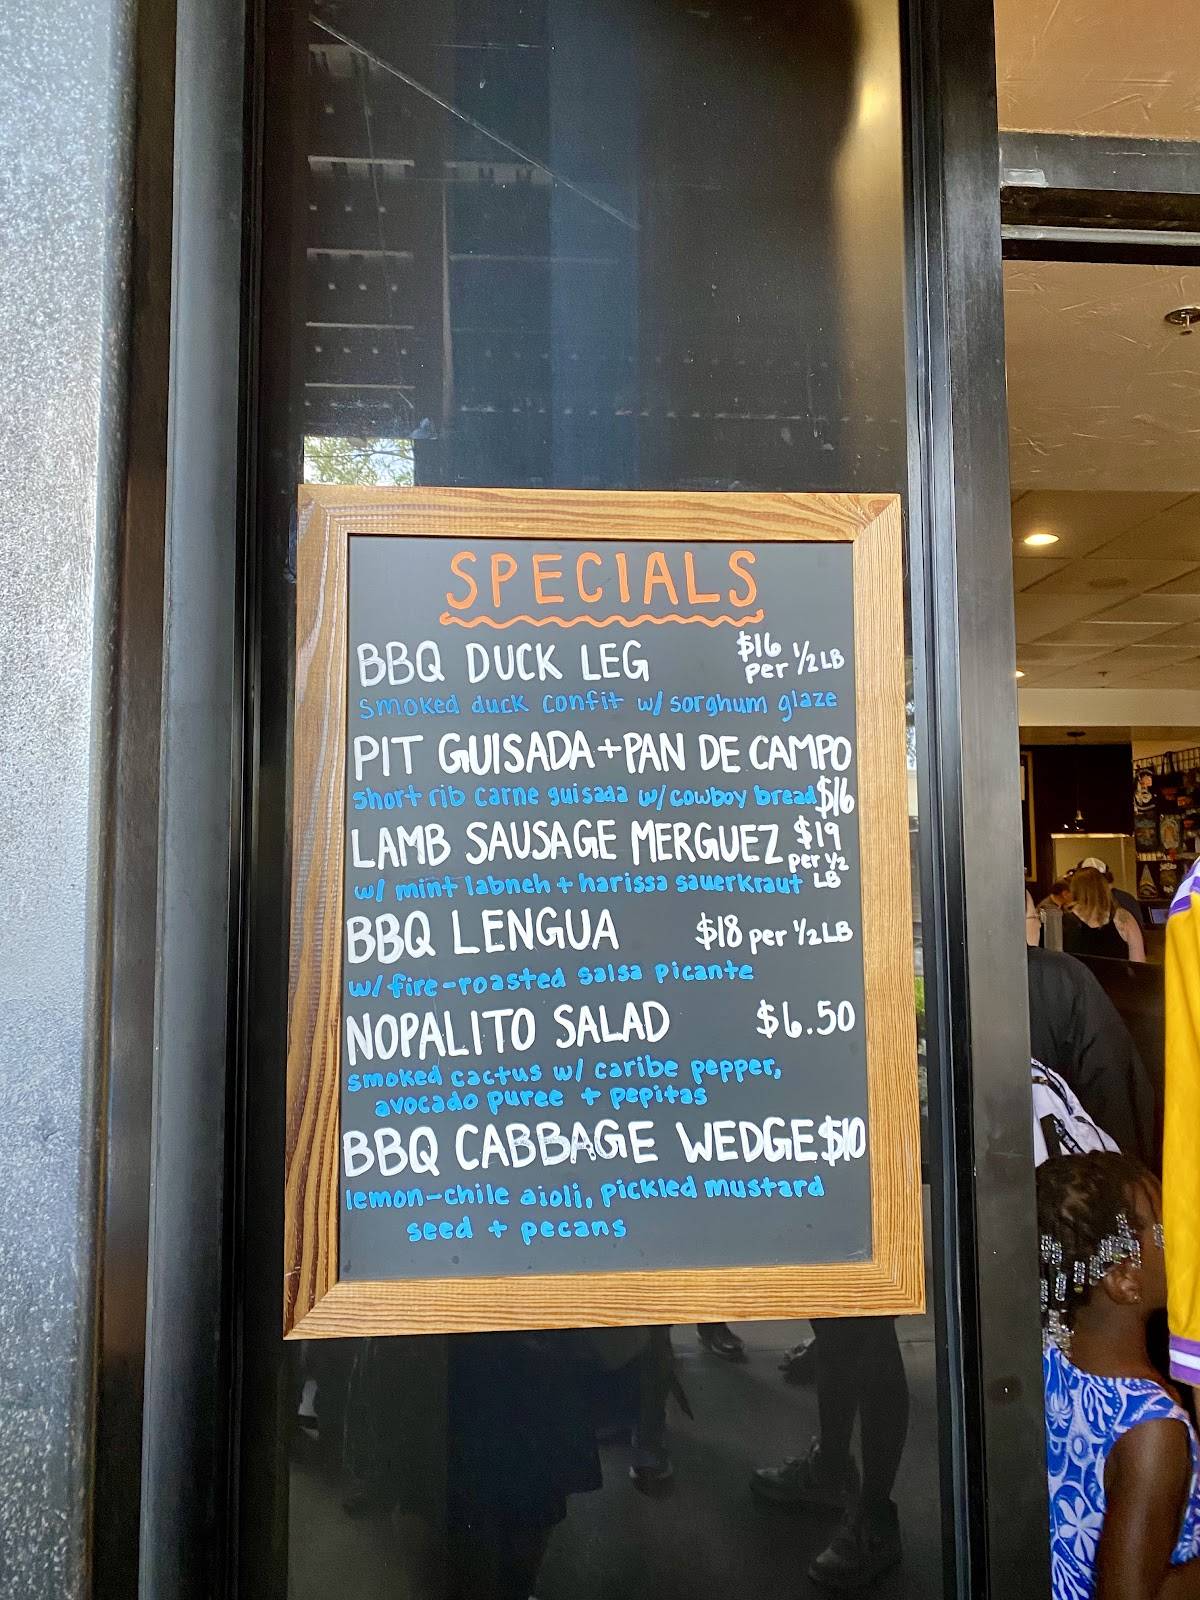 SPECIALS
BBQ DUCK LEG $16 per 1/2 LB
smoked duck confit w/ sorghum glaze
PIT GUISADA + PAN DE CAMPO
short rib carne guisada w/ cowboy bread $16
LAMB SAUSAGE MERGUEZ $19 per 1/2 LB
w/ mint labneh + harissa sauerkraut
BBQ LENGUA $18 per 1/2 LB
w/ fire-roasted salsa picante
NOPALITO SALAD $6.50
smoked cactus w/ caribe pepper,
avocado puree + pepitas
BBQ CABBAGE WEDGE $10
lemon-chile aioli, pickled mustard
seed + pecans